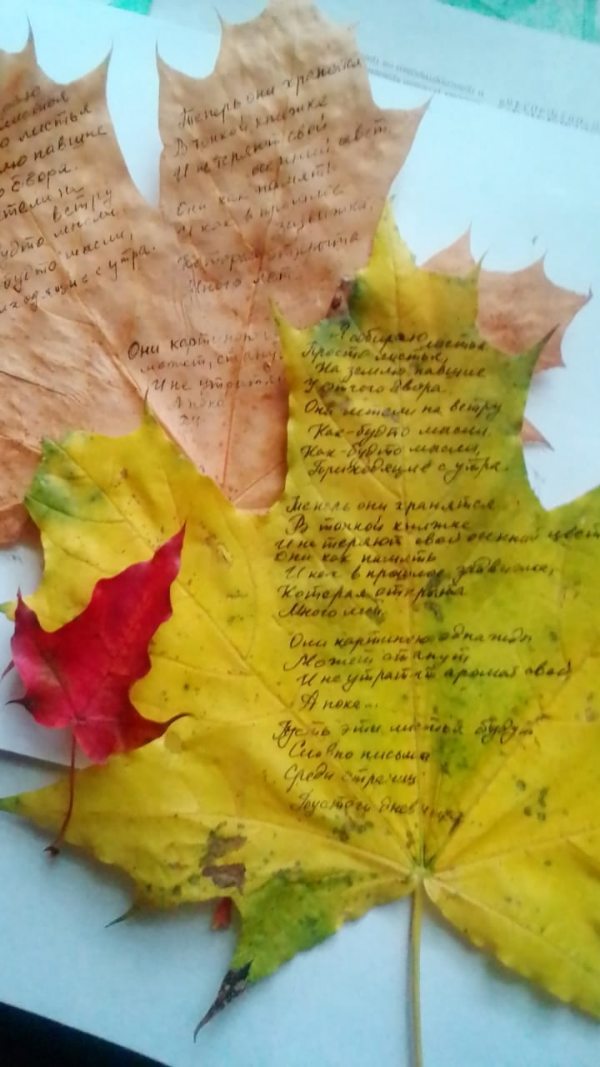 листья
павшие
двора.
на
ветру
мысли
мысли,
с утра.
Теперь они хранятся
В тонкой книжке
И не теряют свой
осенний цвет
Они как память
И как в прошлое
задвижка,
Которая открыта
Много лет
Они
может,
И не
А пока
Я собираю листья
Просто листья,
На землю павшие
У отчего двора.
Они летели на ветру
Как-будто мысли.
Как-будто мысли,
Приходящие с утра.
Теперь они хранятся
В тонкой книжке
И не теряют свой осенний цвет
Они как память
И как в прошлое задвижка,
Которая открыта
Много лет
Они картиною однажды
Может станут
И не утратят аромат свой
А пока...
Пусть эти листья будут
Словно письма
Среди страниц
Пустого дневника